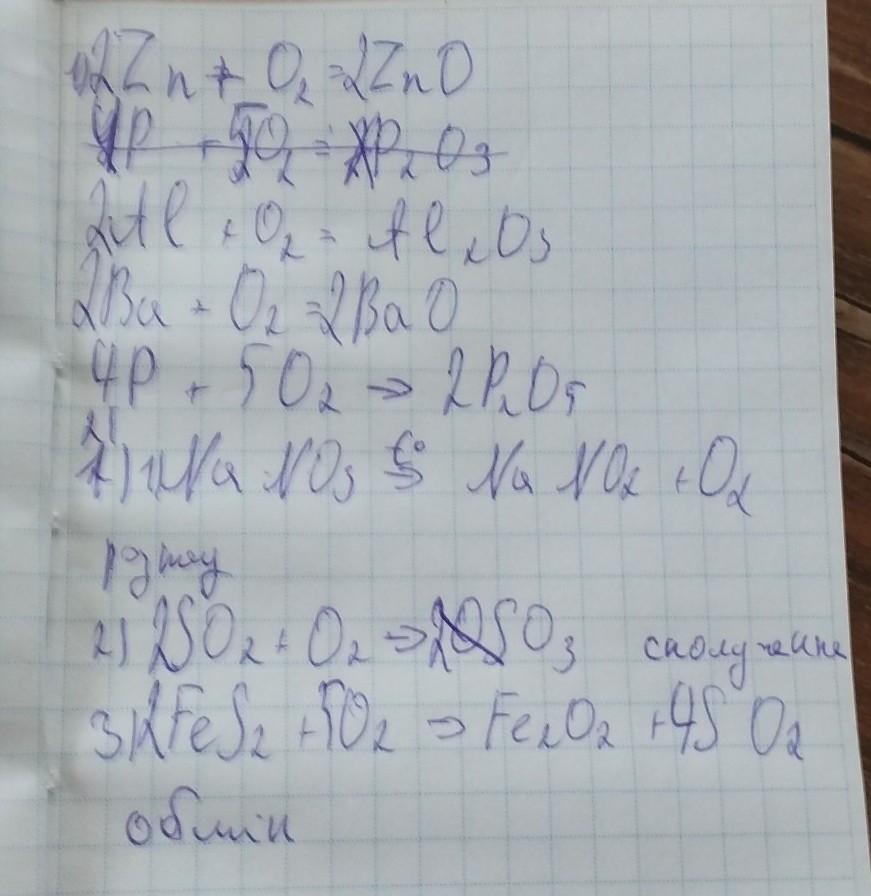 2Zn + O₂ = 2ZnO
4P + 5O₂ = P₂O₃
2Al + O₂ = Al₂O₃
2Ba + O₂ = 2BaO
4P + 5O₂ → 2P₂O₅
2)
1) NaNO₃ t° → NaNO₂ + O₂
2) 2SO₂ + O₂ → 2SO₃ сполучення
3) 2FeS₂ + 5O₂ → Fe₂O₂ + 4SO₂
обмін